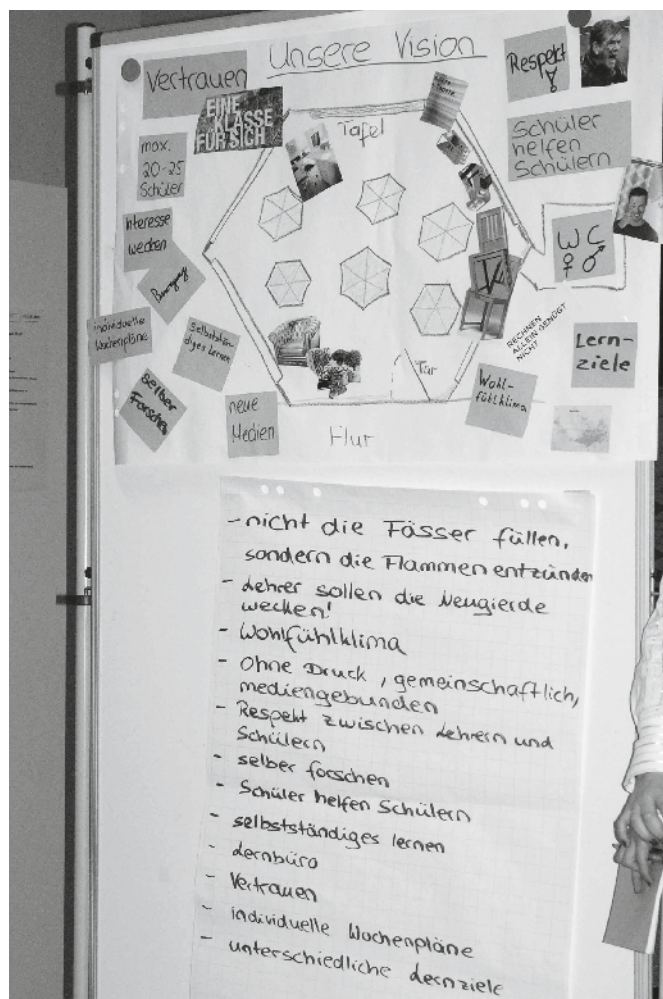 Unsere Vision
Vertrauen
EINE
KLASSE
FÜR SICH
Tafel
Respekt!
Schüler
helfen
Schülern
max.
20-25
Schüler
Interesse
wecken
Bewegung
WC
♀ ♂
individuelle
Wochenpläne
selbststän-
diges Lernen
RECHNEN
ALLEIN GENÜGT
NICHT
Lern-
ziele
selber
Forschen
neue
Medien
Tür
Wohl-
fühlklima
Flur
- nicht die Fässer füllen,
sondern die Flammen entzünden
- Lehrer sollen die Neugierde
wecken!
- Wohlfühlklima
- Ohne Druck, gemeinschaftlich,
mediengebunden
- Respekt zwischen Lehrern und
Schülern
- selber forschen
- Schüler helfen Schülern
- selbstständiges lernen
- Lernbüro
- Vertrauen
- individuelle Wochenpläne
- unterschiedliche Lernziele